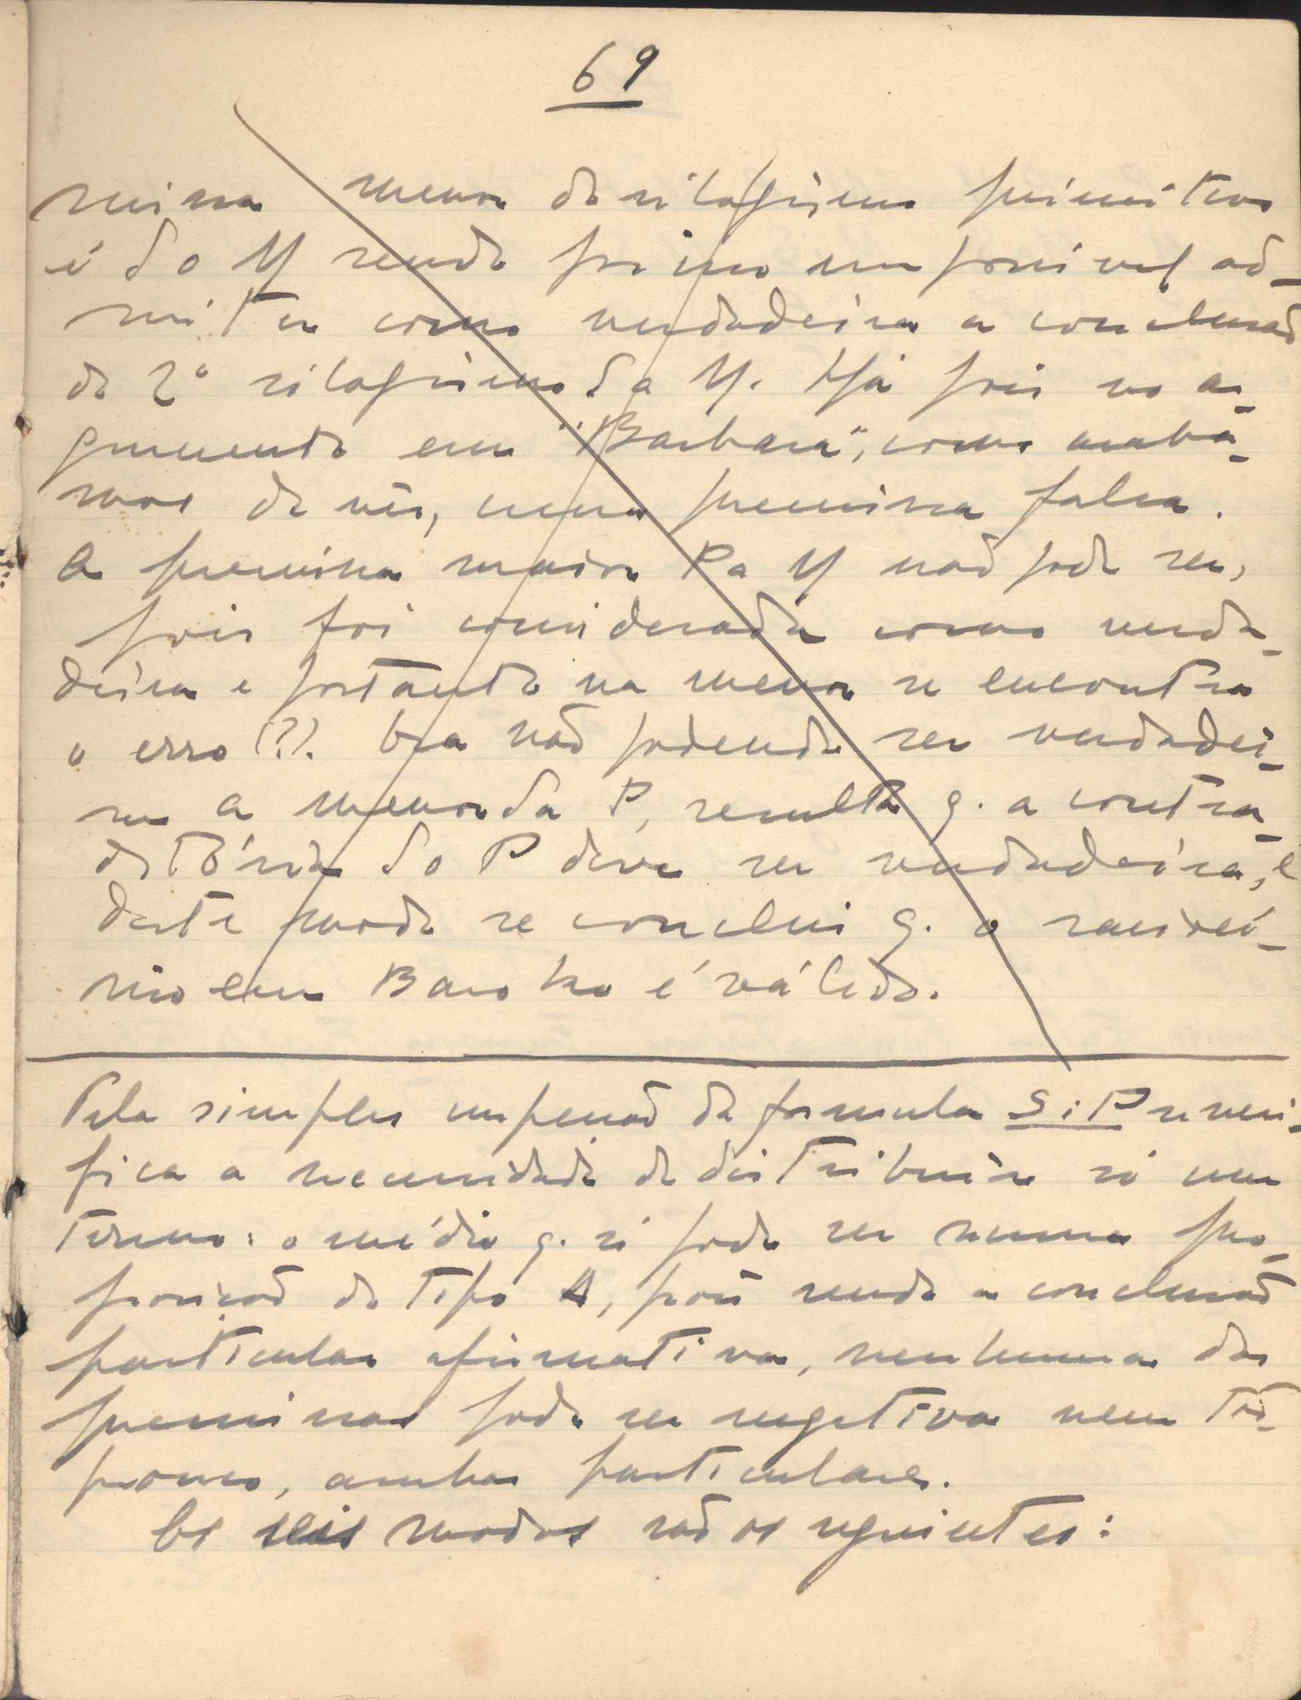 69
missa menor do silogismo primitivo
é S o M sendo por isso impossivel ad-
mitir como verdadeira a conclusão
do 2º silogismo S a M. Há pois no ar-
gumento em "Barbara", como acabá-
mos de vêr, uma premissa falsa.
A premissa maior P a M não pode ser,
pois foi considerada como verda-
deira e portanto na menor se encontra
o erro (?). Ora não podendo ser verdadei-
ra a menor S a P, resulta q. a contra-
ditória S o P deve ser verdadeira, e
deste modo se conclui q. o raciocí-
nio em Baroko é válido.
Pela simples inspeção da formula S i P se veri-
fica a necessidade de distribuir só um
termo: o médio q. só pode ser numa pro-
posição do tipo A, pois sendo a conclusão
particular afirmativa, nenhuma das
premissas pode ser negativa nem tão-
pouco, ambas particulares.
Os seis modos são os seguintes: